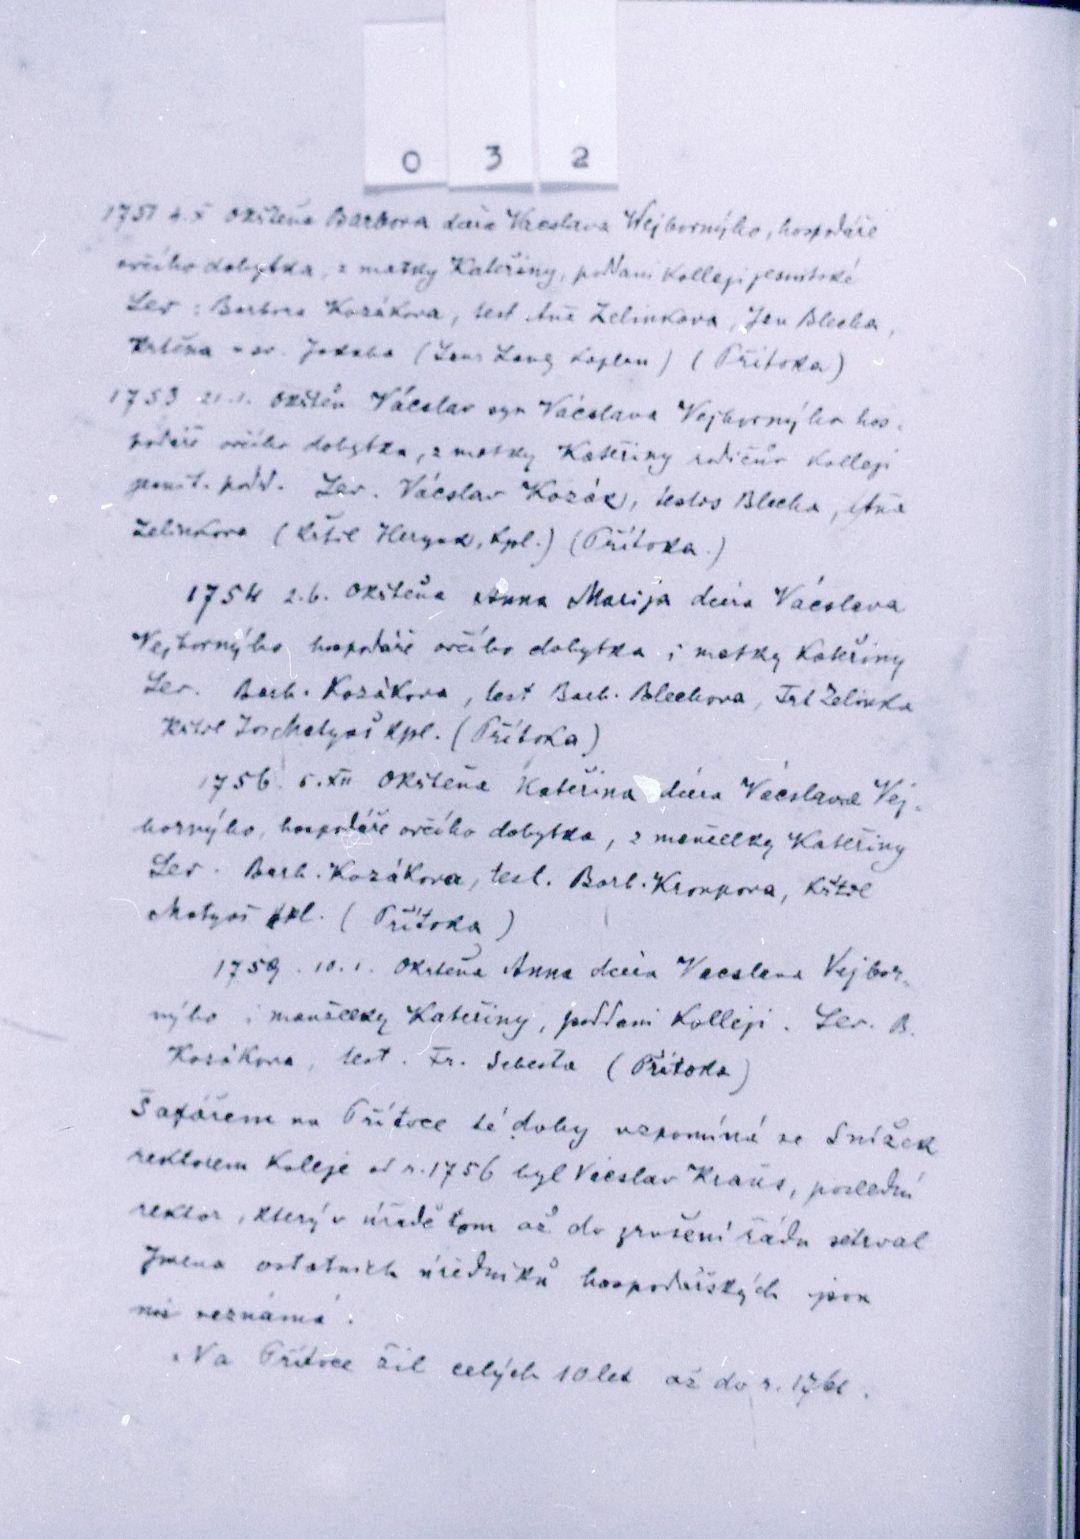 0 3 2
1751 4.X Okřtěna Barbora dcera Vacslava Wejborného, hospodáře
ovčího dobytka, z matky Kateřiny, poddaní kollegi jesuitské
Lev: Barbora Kozákova, test Aña Zelinkova, Jan Blecha,
křtěna u sv. Jakuba (Kaplan) (Přítoka)
1753 21.1. Okřtěn Vácslav syn Vácslava Vejborného hos-
podáře ovčího dobytka, z matky Kateřiny rodičův kollegí
jesuit. podd. Lev. Vácslav Kozák, testes Blecha, Aña
Zelinkova (křtil kpl.) (Přítoka.)
1754 2.6. Okřtěna Anna Marija dcera Vácslava
Vejborného hospodáře ovčího dobytka i matky Kateřiny
Lev. Barb. Kozákova, test Barb. Blechova, Zelinka
křtil Jos Matyaš kpl. (Přítoka)
1756. 5.XII Okřtěna Kateřina dcera Vácslava Vej-
borného, hospodáře ovčího dobytka, z manželky Kateřiny
Lev. Barb. Kozákova, test. Barb. Kronpova, křtil
Matyaš kpl. (Přítoka)
1759. 10.1. Okřtěna Anna dcera Vacslava Vejbor-
ného i manželky Kateřiny, poddaní Kolleji. Lev. B.
Kozákova, test. Fr. Šebesta (Přítoka)
Šafářem na Přítoce té doby vzpomíná se Snížek
rektorem Koleje od r. 1756 byl Vácslav Kraus, poslední
rektor, který v úřadě tom až do zrušení řádu setrval
Jména ostatních úředníků hospodářských jsou
nám neznámá.
Na Přítoce žil celých 10 let až do r. 1761.